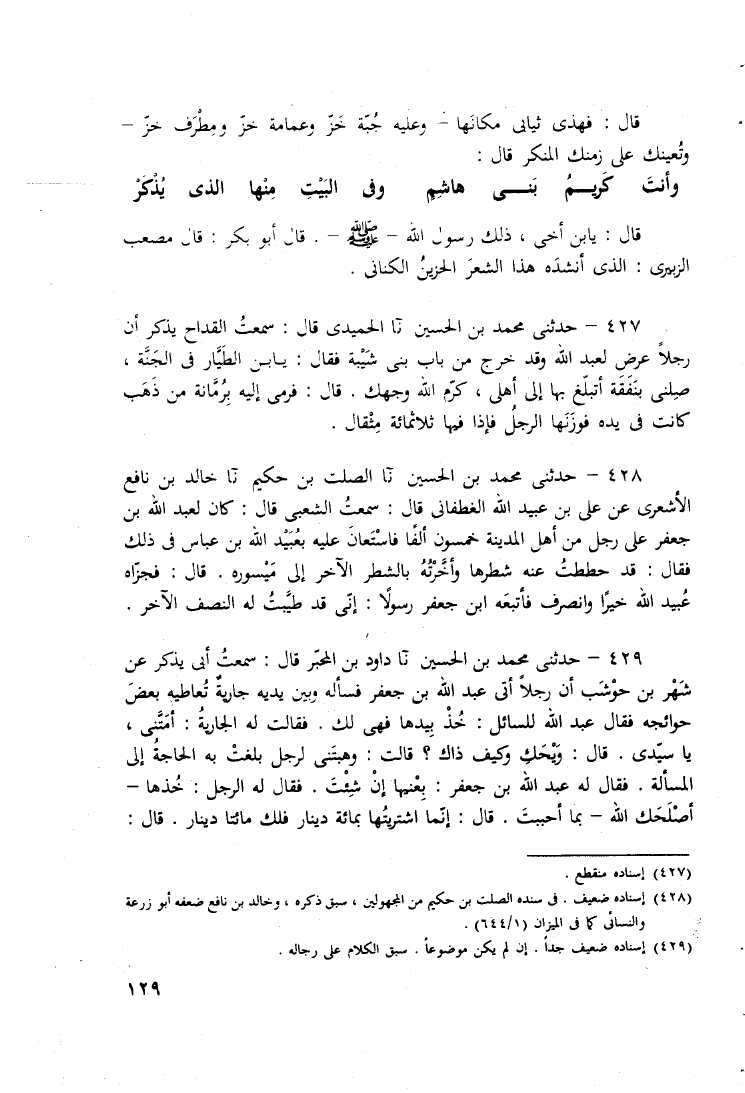 قال : فهذى ثيابى مكانَها – وعليه جُبّة خَزّ وعمامة خزّ ومِطْرَف خزّ –
وتُعينك على زمنك المنكر قال :
وأنتَ كَريــمُ بَنــى هاشمٍ وفى البَيْتِ مِنْها الذى يُذْكَرْ
قال : يابن أخى ، ذلك رسول الله – ﷺ – . قال أبو بكر : قال مصعب
الزبيرى : الذى أنشدَه هذا الشعرَ الحزينُ الكنانى .
٤٢٧ – حدثنى محمد بن الحسين نَا الحميدى قال : سمعتُ القداح يذكر أن
رجلاً عرض لعبد الله وقد خرج من باب بنى شَيْبة فقال : يـابـن الطيَّار فى الجَنَّة ،
صِلنى بنَفَقَة أتبلّغ بها إلى أهلى ، كرّم الله وجهك . قال : فرمى إليه برُمَّانة من ذَهَب
كانت فى يده فوزَنَها الرجلُ فإذا فيها ثلاثمائة مِثْقال .
٤٢٨ – حدثنى محمد بن الحسين نَا الصلت بن حكيم نَا خالد بن نافع
الأشعرى عن على بن عبيد الله الغطفانى قال : سمعتُ الشعبى قال : كان لعبد الله بن
جعفر على رجل من أهل المدينة خمسون ألفًا فاسْتَعانَ عليه بعُبَيْد الله بن عباس فى ذلك
فقال : قد حططتُ عنه شطرها وأخَّرْتُهُ بالشطر الآخر إلى مَيْسوره . قال : فجزّاه
عُبيد الله خيرًا وانصرف فأتبعَه ابن جعفر رسولًا : إنّى قد طيَّبتُ له النصف الآخر .
٤٢٩ – حدثنى محمد بن الحسين نَا داود بن المحبّر قال : سمعتُ أبى يذكر عن
شَهْر بن حَوْشَب أن رجلاً أتى عبد الله بن جعفر فسأله وبين يديه جاريةٌ تُعاطيه بعضَ
حوائجه فقال عبد الله للسائل : خُذْ بيدها فهى لك . فقالت له الجاريةُ : أمَتَّنى ،
يا سيّدى . قال : وَيْحَكِ وكيف ذاك ؟ قالت : وهبتَنى لرجل بلغتْ به الحاجةُ إلى
المسألة . فقال له عبد الله بن جعفر : بِعْنيها إنْ شِئْتَ . فقال له الرجل : خُذها –
أصْلَحَك الله – بما أحببتَ . قال : إنّما اشتريتُها بمائة دينار فلك مائتا دينار . قال :
(٤٢٧) إسناده منقطع .
(٤٢٨) إسناده ضعيف . فى سنده الصلت بن حكيم من المجهولين ، سبق ذكره ، وخالد بن نافع ضعفه أبو زرعة
والنسائى كما فى الميزان (٦٤٤/١) .
(٤٢٩) إسناده ضعيف جداً . إن لم يكن موضوعاً . سبق الكلام على رجاله .
١٢٩